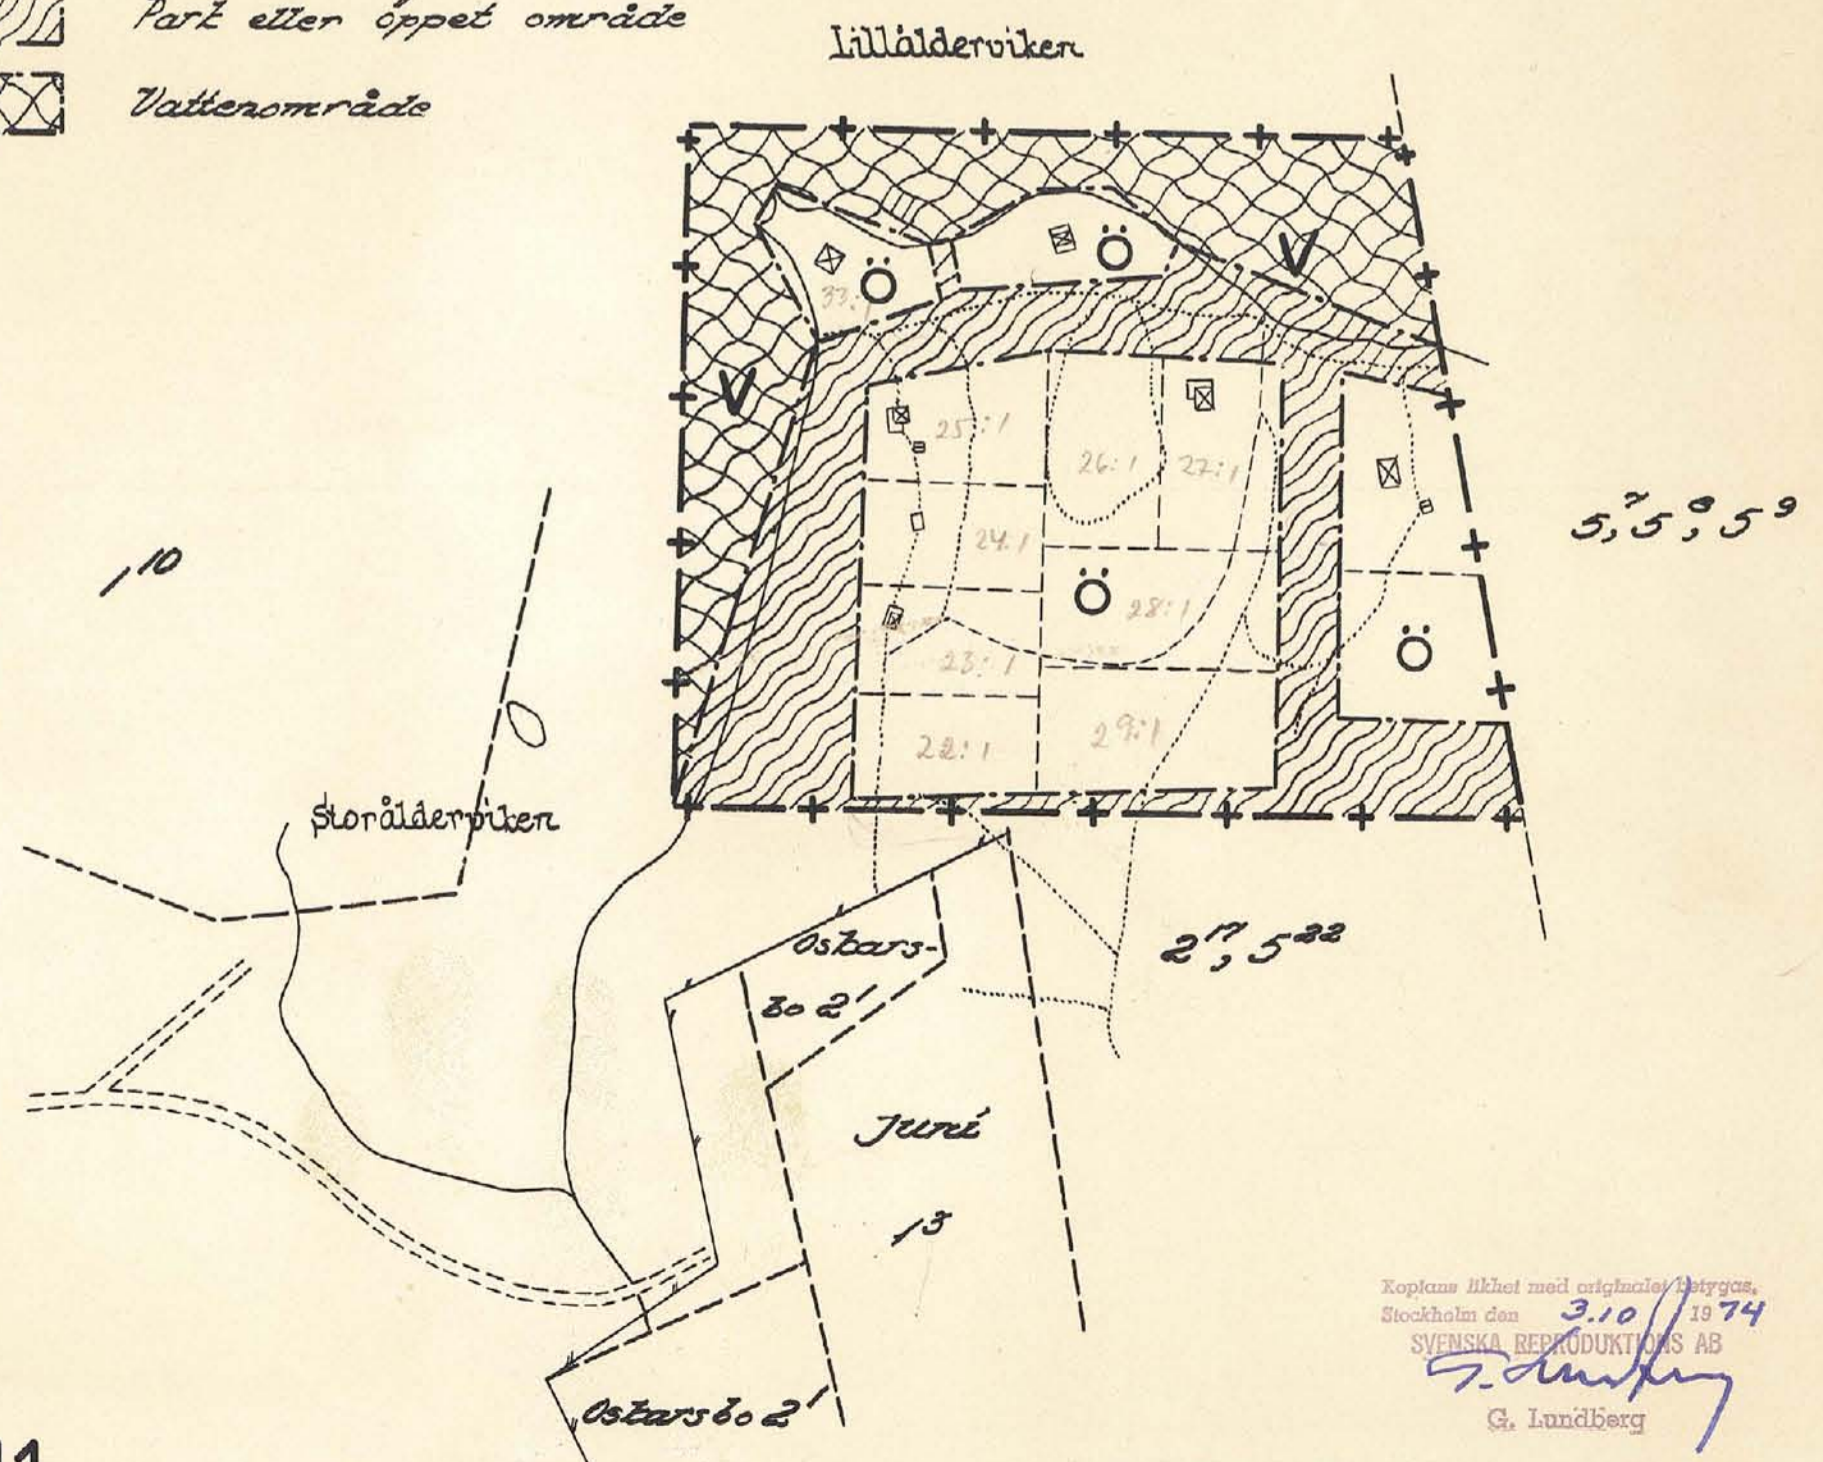 Park eller öppet område
Vattenområde
Lillålderviken
V
V
Ö
Ö
33:
25:1
26:1
27:1
24:1
Ö
28:1
23:1
22:1
29:1
Ö
5⁷, 5⁸, 5⁹
1¹⁰
Storålderviken
Oskars-
bo 2¹
2¹⁷, 5²²
Juni
1³
Oskarsbo 2¹
Kopians likhet med originalet betygas.
Stockholm den 3.10 1974
SVENSKA REPRODUKTIONS AB
G. Lundberg